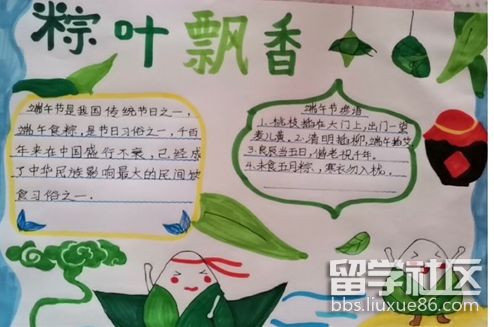 粽叶飘香
端午节是我国传统节日之一,
端午食粽,是节日习俗之一,千百
年来在中国盛行不衰,已经成
了中华民族影响最大的民间饮
食习俗之一。
端午节
1.桃枝插在大门上,出门一望
麦儿黄。2.清明插柳,端午插艾
3.良辰当五日,偕老祝千年。
4.未食五月粽,寒衣勿入栊。
留学社区
bbs.liuxue86.com